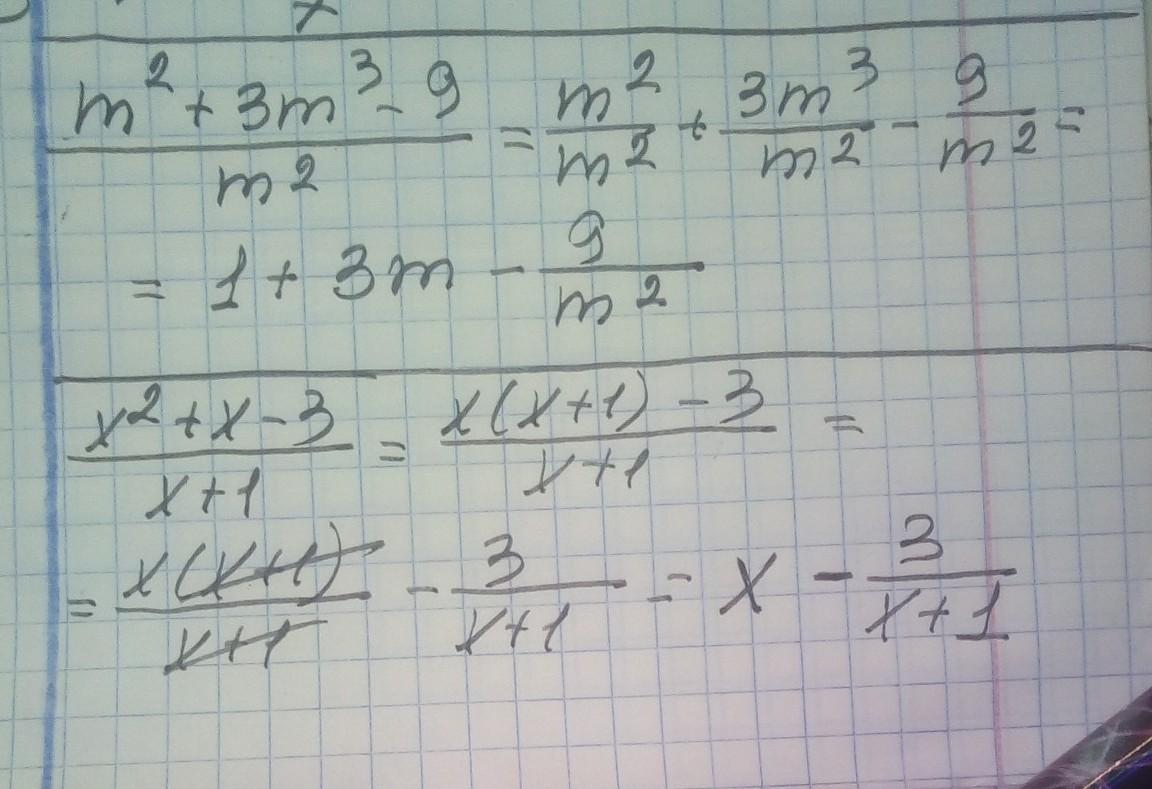 x
m² + 3m³ - 9 / m² = m² / m² + 3m³ / m² - 9 / m² =
= 1 + 3m - 9 / m²
x² + x - 3 / x + 1 = x(x+1) - 3 / x + 1 =
= x(x+1) / x+1 - 3 / x+1 = x - 3 / x+1